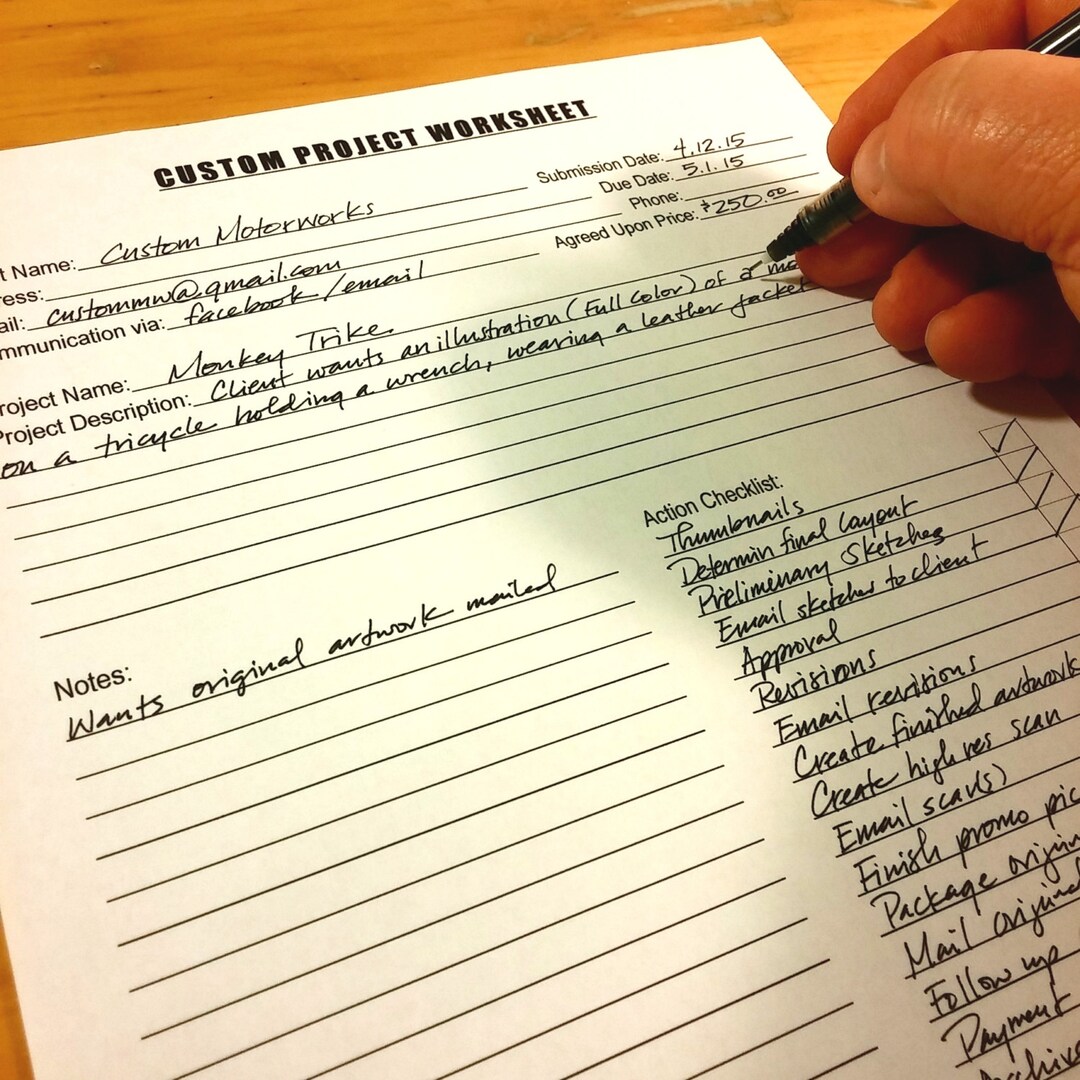 CUSTOM PROJECT WORKSHEET
Submission Date: 4.12.15
Due Date: 5.1.15
Phone:
Agreed Upon Price: $250.00
t Name: Custom Motorworks
ress:
ail: custommw@gmail.com
mmunication via: facebook/email
roject Name: Monkey Trike
Project Description: Client wants an illustration (Full Color) of a
on a tricycle holding a wrench, wearing a leather jacket
Action Checklist:
Thumbnails
Determin final layout
Preliminary sketches
Email sketches to client
Approval
Revisions
Email revisions
Create finished artwork
Create high res scan
Email scan(s)
Finish promo pic
Package origin
Mail original
Follow up
Payment
Archive
Notes:
Wants original artwork mailed